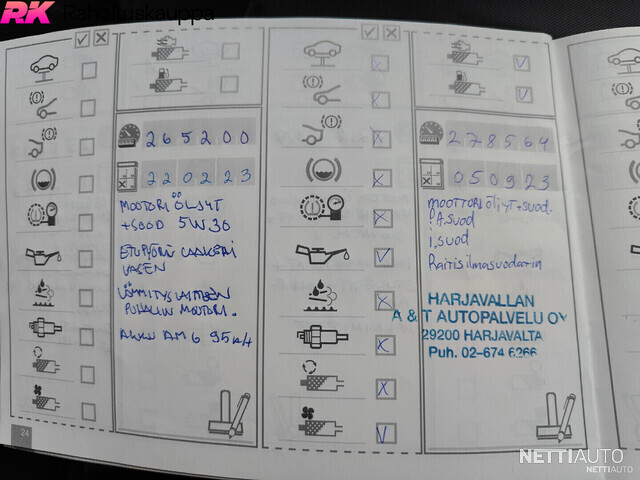 RK Rahoituskauppa
265200
220223
MOOTORI ÖLJYT
+SOOD 5W30
ETUPYÖRÄ LAAKERI
VASEN
LÄMMITYSLAITTEEN
PUHALIN MOOTORI.
AKKU AM6 95
24
278564
050923
moottoriöljyt+suod.
i,suod
Raitisilmasuodatin
HARJAVALLAN
A & T AUTOPALVELU OY
29200 HARJAVALTA
Puh. 02-674 6266
NETTIAUTO
NETTIAUTO